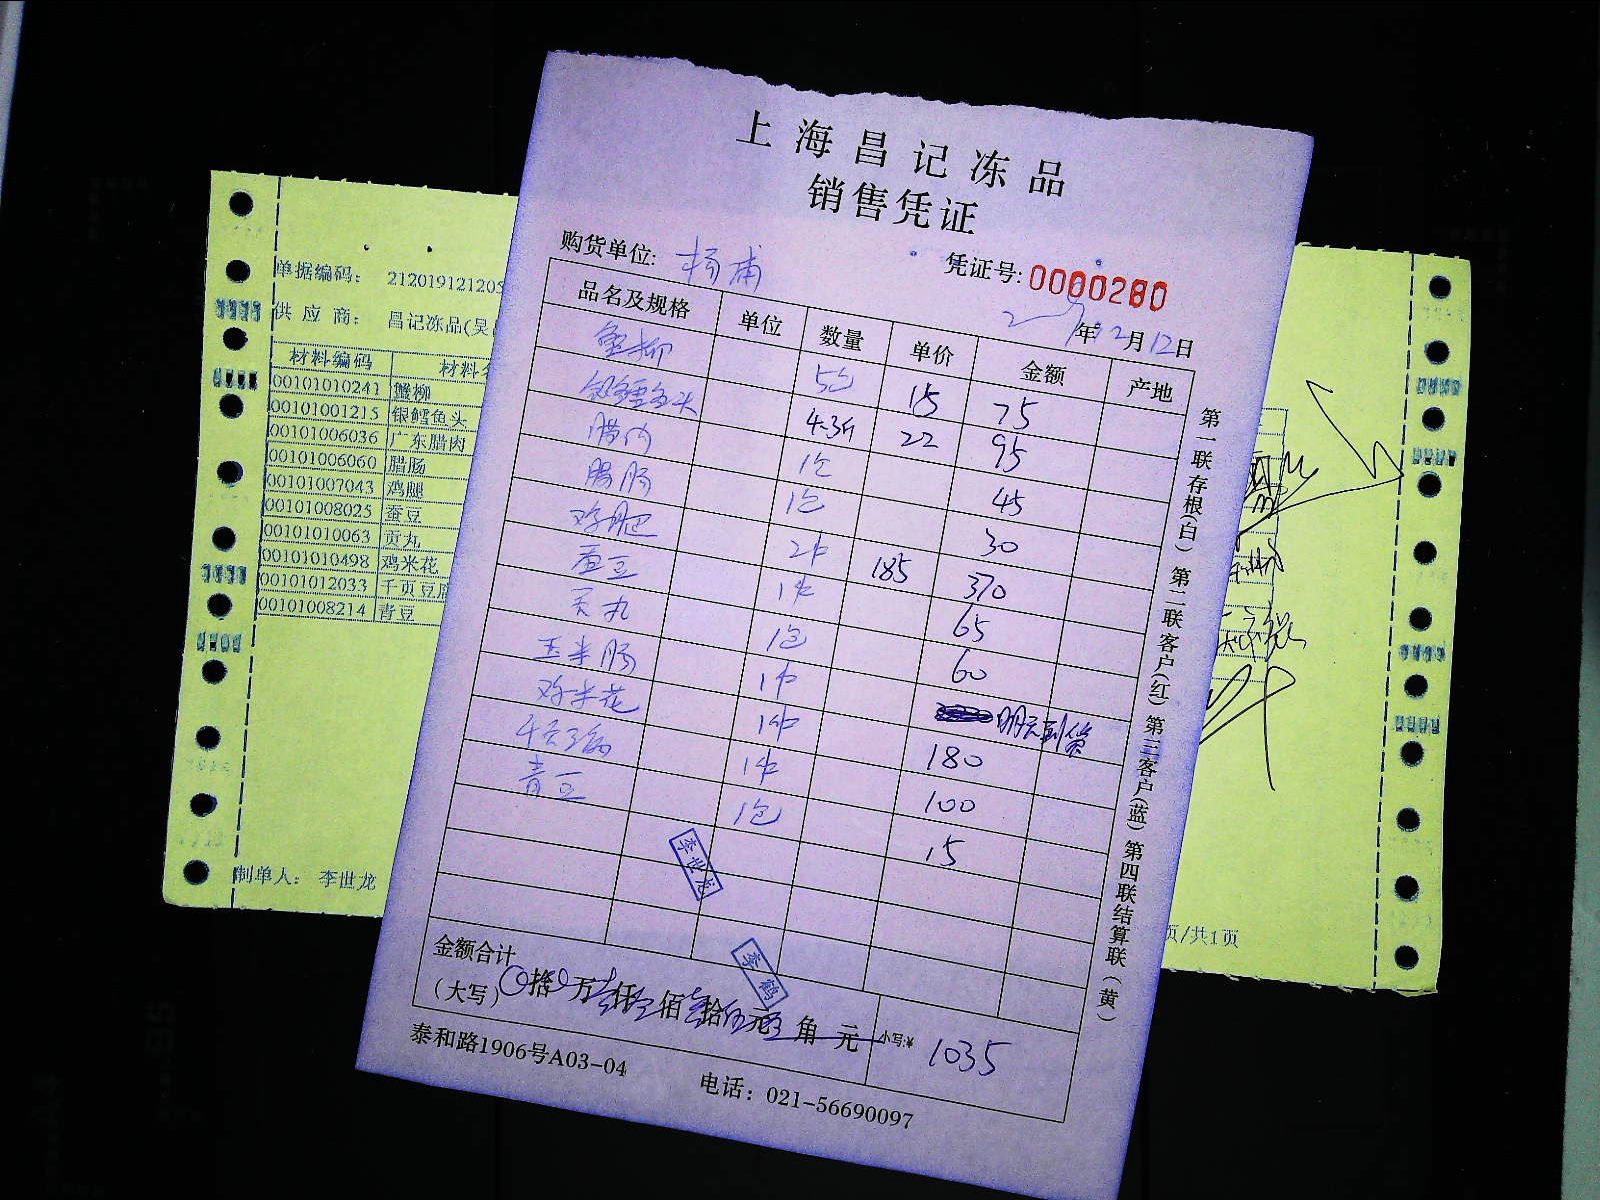 上海昌记冻品
销售凭证
购货单位: 杨浦
凭证号: 0000280
年12月12日
品名及规格 单位 数量 单价 金额 产地
蟹柳 5包 15 75
银鳕鱼头 4.3斤 22 95
腊肉 1包 45
腊肠 1包 30
鸡腿 2件 185 370
蚕豆 1件 65
贡丸 1包 60
玉米肠 1件 明天到货
鸡米花 1件 180
1件 100
青豆 1包 15
李世龙
李鹤
金额合计
(大写) 拾 万 仟 佰 拾 元 角 元 小写:¥ 1035
泰和路1906号A03-04
电话: 021-56690097
第一联存根(白) 第二联客户(红) 第三客户(蓝) 第四联结算联(黄)
单据编码: 21201912120
供应商: 昌记冻品(吴
材料编码 材料
00101010241 蟹柳
00101001215 银鳕鱼头
00101006036 广东腊肉
00101006060 腊肠
00101007043 鸡腿
00101008025 蚕豆
00101010063 贡丸
00101010498 鸡米花
00101012033 千页豆腐
00101008214 青豆
制单人: 李世龙
页/共1页